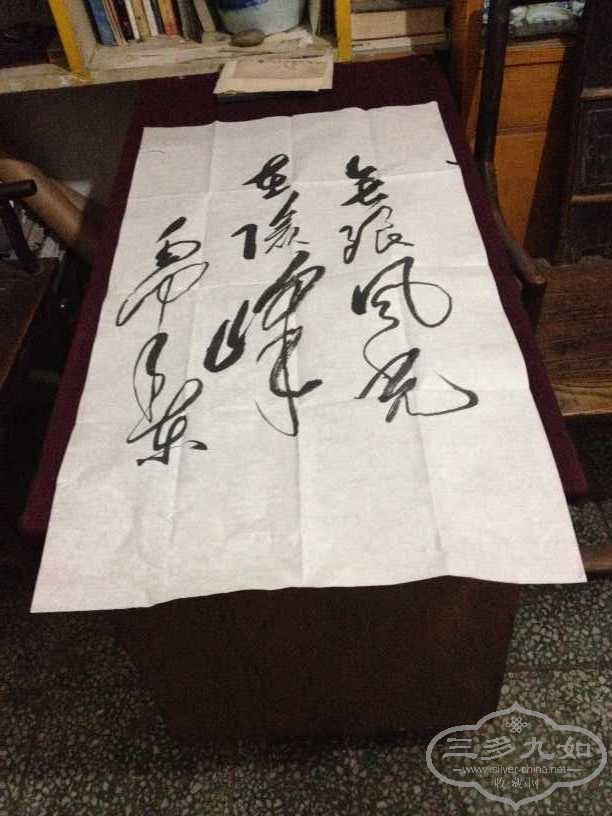 無限風光
在險峰
毛澤東
三多九如
www.silver-china.net
收·藏·网